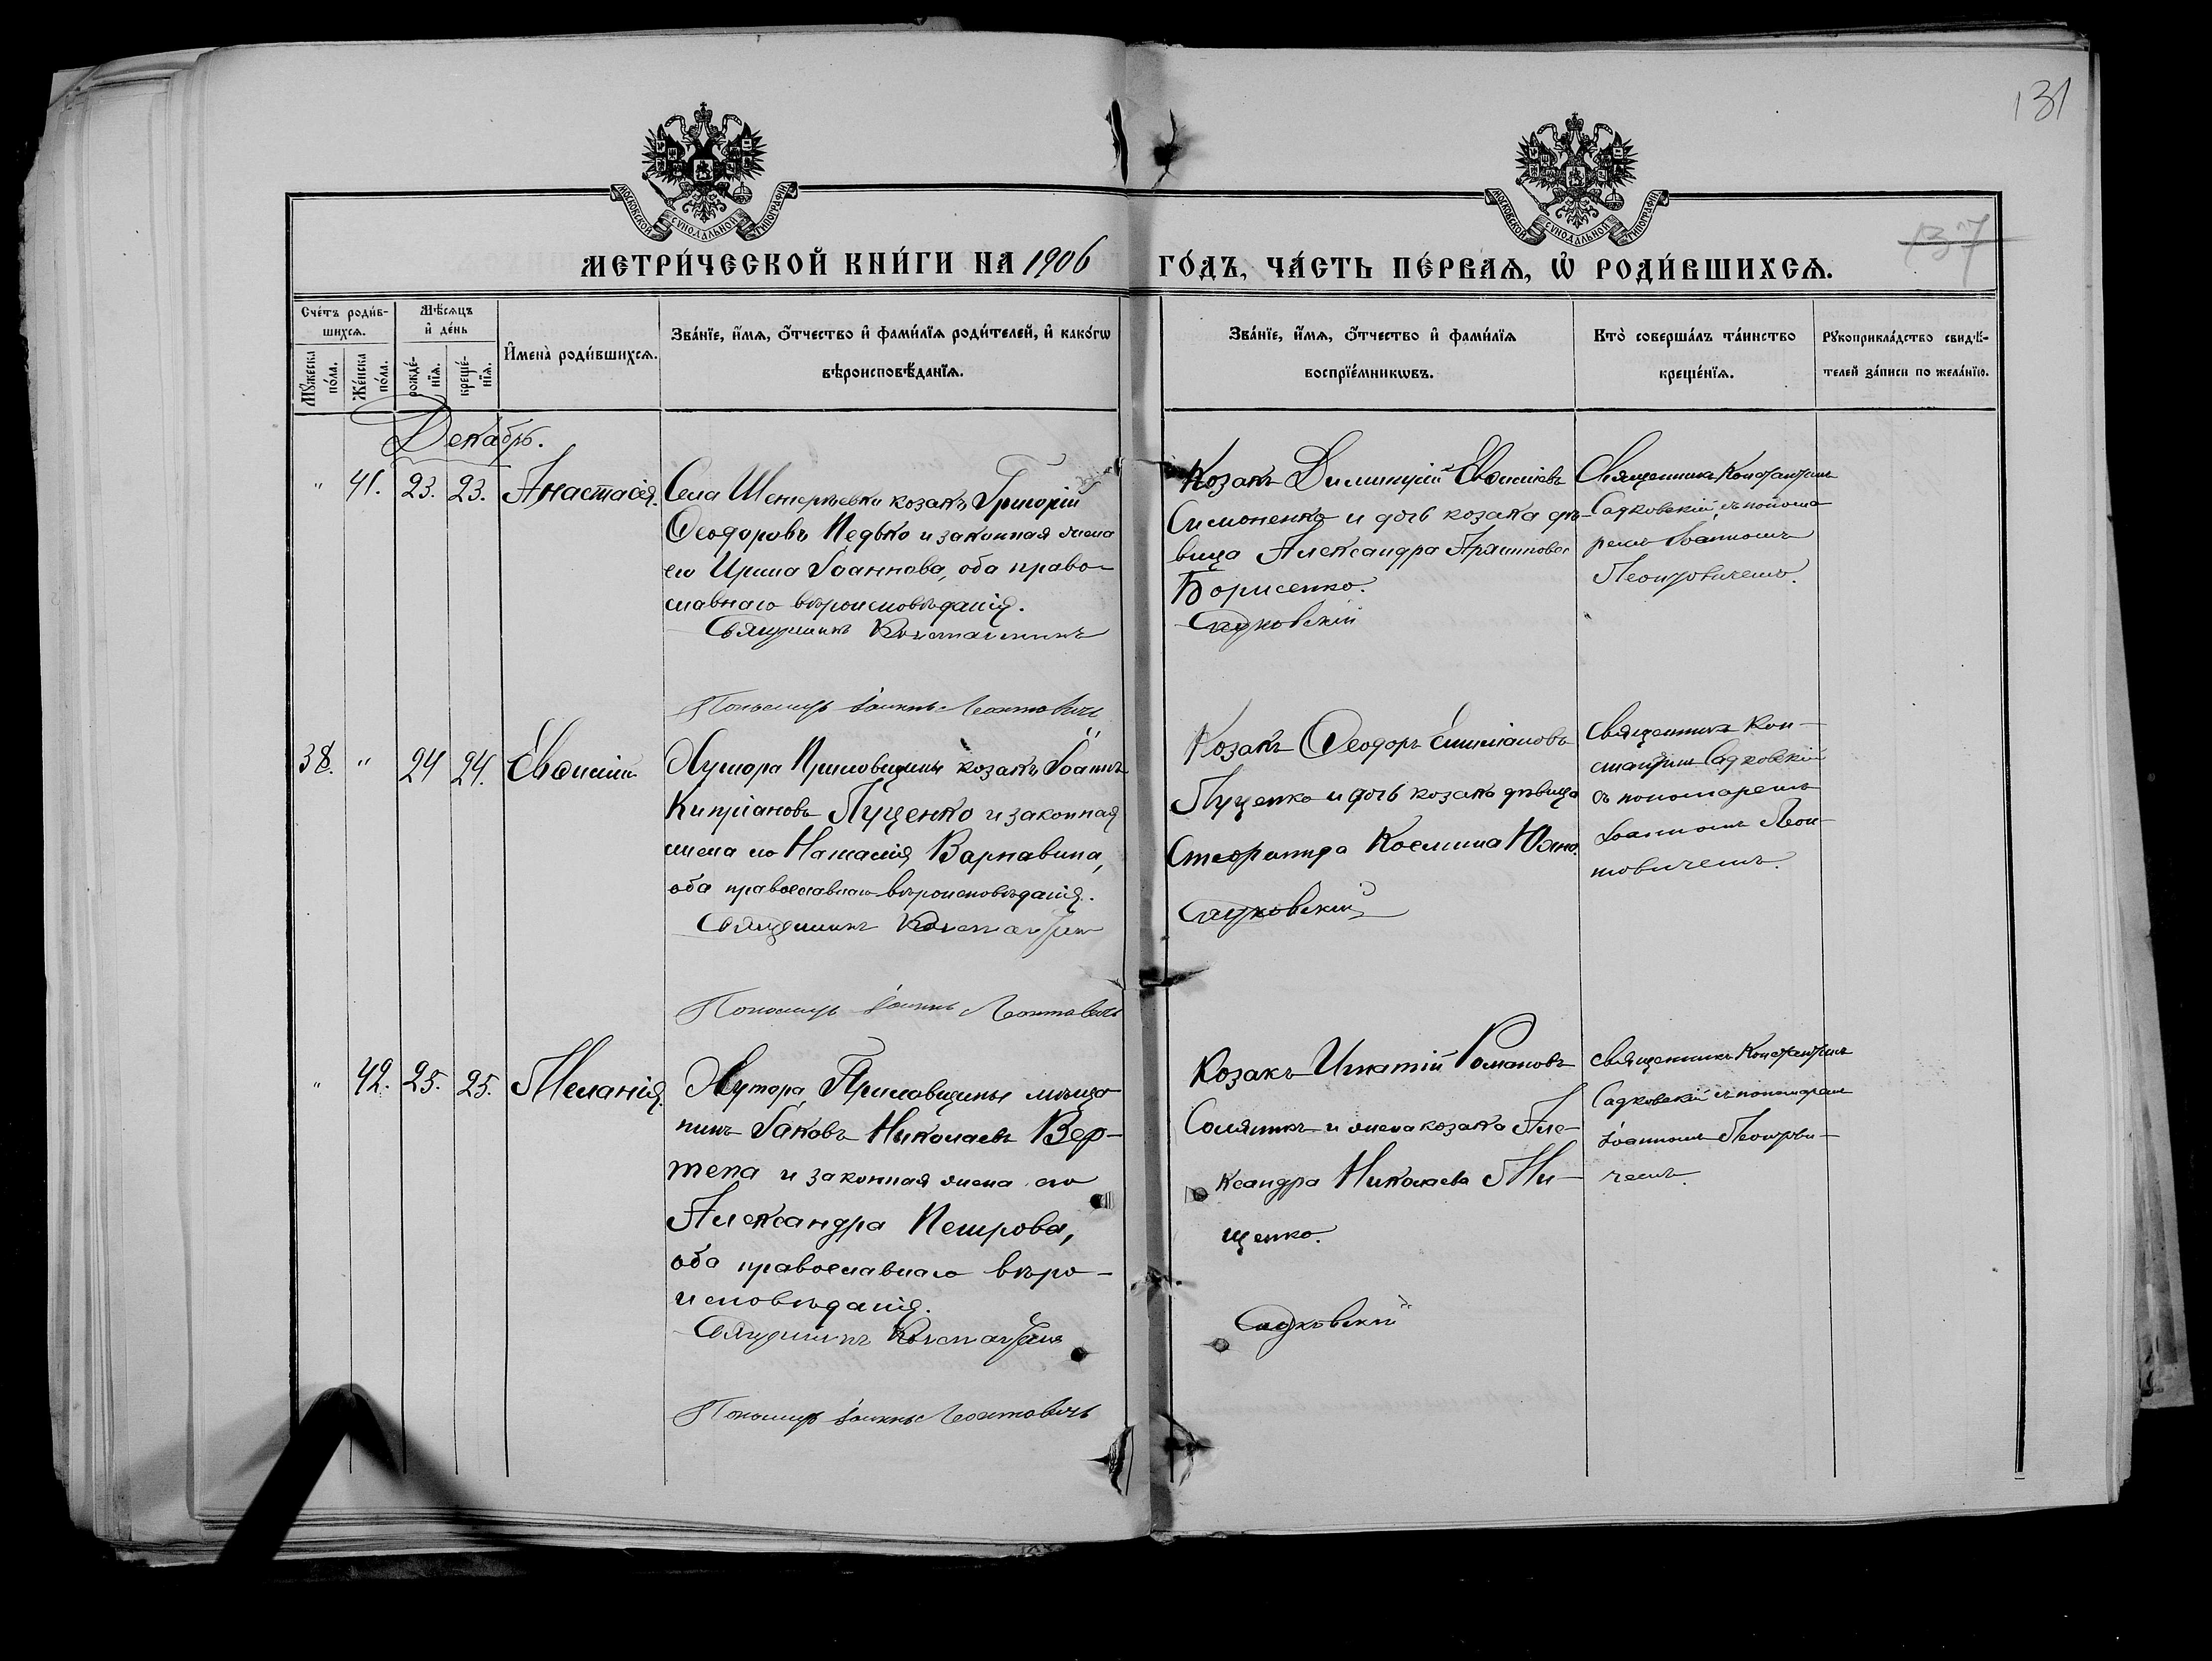 131
137
МОСКОВСКОЙ СѴНОДАЛЬНОЙ ТИПОГРАФІИ
МОСКОВСКОЙ СѴНОДАЛЬНОЙ ТИПОГРАФІИ
МЕТРИ́ЧЕСКОЙ КНИ́ГИ НА 1906 ГО́ДЪ, ЧА́СТЬ ПЕ́РВАѦ, Ѡ҆ РОДИ́ВШИХСѦ.
Сче́тъ роди́в-
шихсѧ.
Мѣ́сѧцъ
и҆ де́нь
Мꙋ́жеска
по́ла.
Же́нска
по́ла.
рожде́-
нїѧ.
креще́-
нїѧ.
И҆мена̀ роди́вшихсѧ.
Зва́нїе, и҆́мѧ, ѻ҆́тчество и҆ фами́лїѧ роди́телей, и҆ како́гѡ
вѣроисповѣ́данїѧ.
Зва́нїе, и҆́мѧ, ѻ҆́тчество и҆ фами́лїѧ
воспрїе́мникѡвъ.
Кто̀ соверша́лъ та́инство
креще́нїѧ.
Рꙋкоприкла́дство свидѣ́-
телей за́писи по жела́нїю.
Декабрь.
" 41. 23. 23. Анастасія.
Села козакъ Григорій
Ѳеодоровъ Педько и законная жена
его Ирина Іоаннова, оба право-
славнаго вѣроисповѣданія.
Священникъ Константинъ
Пономарь Іоаннъ Леонтовичъ
Козакъ Димитрій Евѳиміевъ
Симоненко и дочь козака дѣ-
вица Александра
Борисенко.
Садковскій
Священникъ Константинъ
Садковскій съ понома-
ремъ Іоанномъ
Леонтовичемъ.
38. " 24 24. Евѳимій
Хутора Присовщины козакъ Іоаннъ
Кипріановъ Луценко и законная
жена его Наталія Варнавина,
оба православнаго вѣроисповѣданія.
Священникъ Константинъ
Пономарь Іоаннъ Леонтовичъ
Козакъ Ѳеодоръ
Луценко и дочь козака дѣвица
Косьмина
Садковскій
Священникъ Кон-
стантинъ Садковскій
съ пономаремъ
Іоанномъ Леон-
товичемъ.
" 42. 25. 25. Меланія.
Хутора Присовщины мѣща-
нинъ Іаковъ Николаевъ Вер-
тепа и законная жена его
Александра Петрова,
оба православнаго вѣро-
исповѣданія.
Священникъ Константинъ
Пономарь Іоаннъ Леонтовичъ
Козакъ Игнатій Романовъ
Соляникъ и жена козака Але-
ксандра Николаева Ми-
щенко.
Садковскій
Священникъ Константинъ
Садковскій съ пономаремъ
Іоанномъ Леонтови-
чемъ.